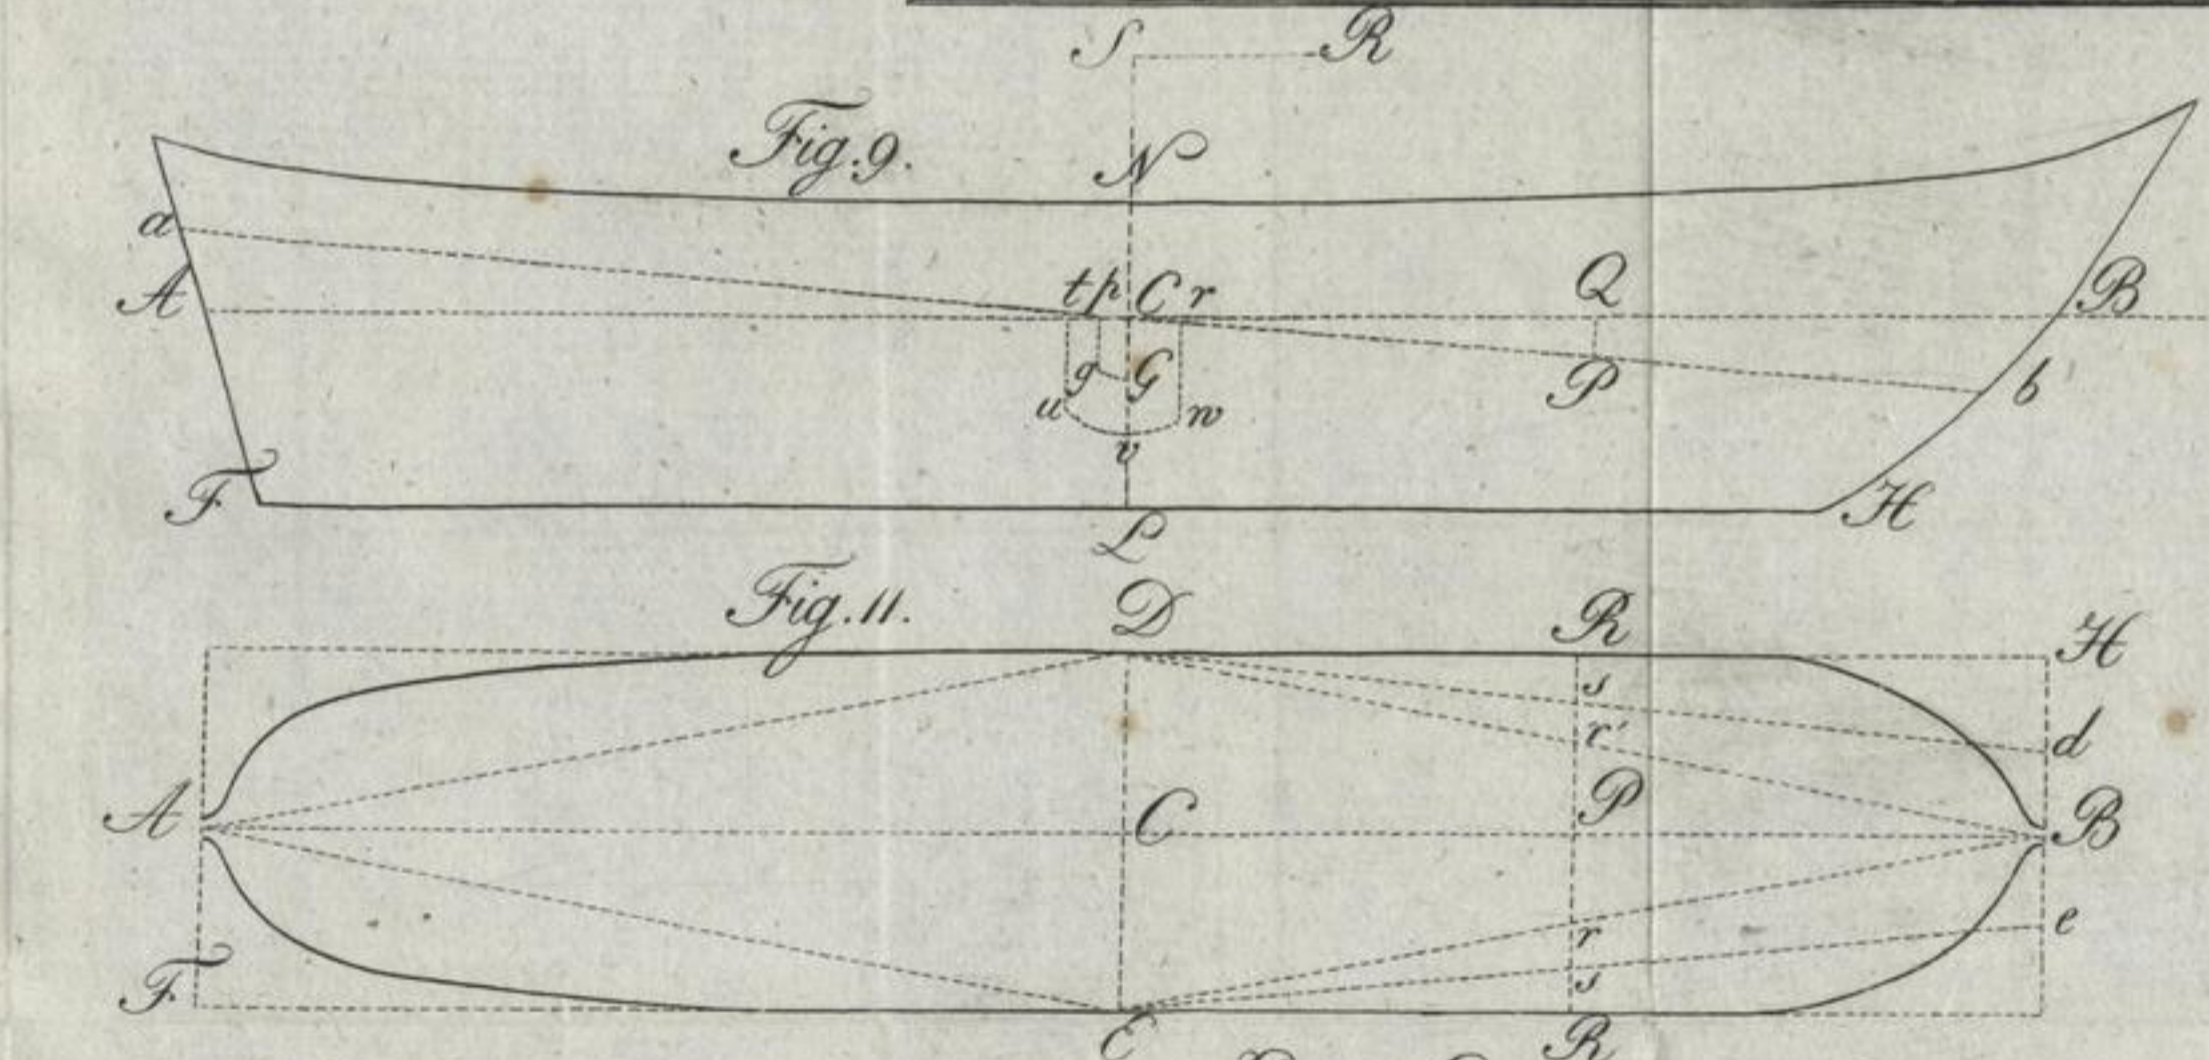 S R
Fig. 9. N
a
A t p C r Q B
g G P b
u w
v
F H
L
Fig. 11. D R H
s
r' d
A C P B
r e
F s
E R